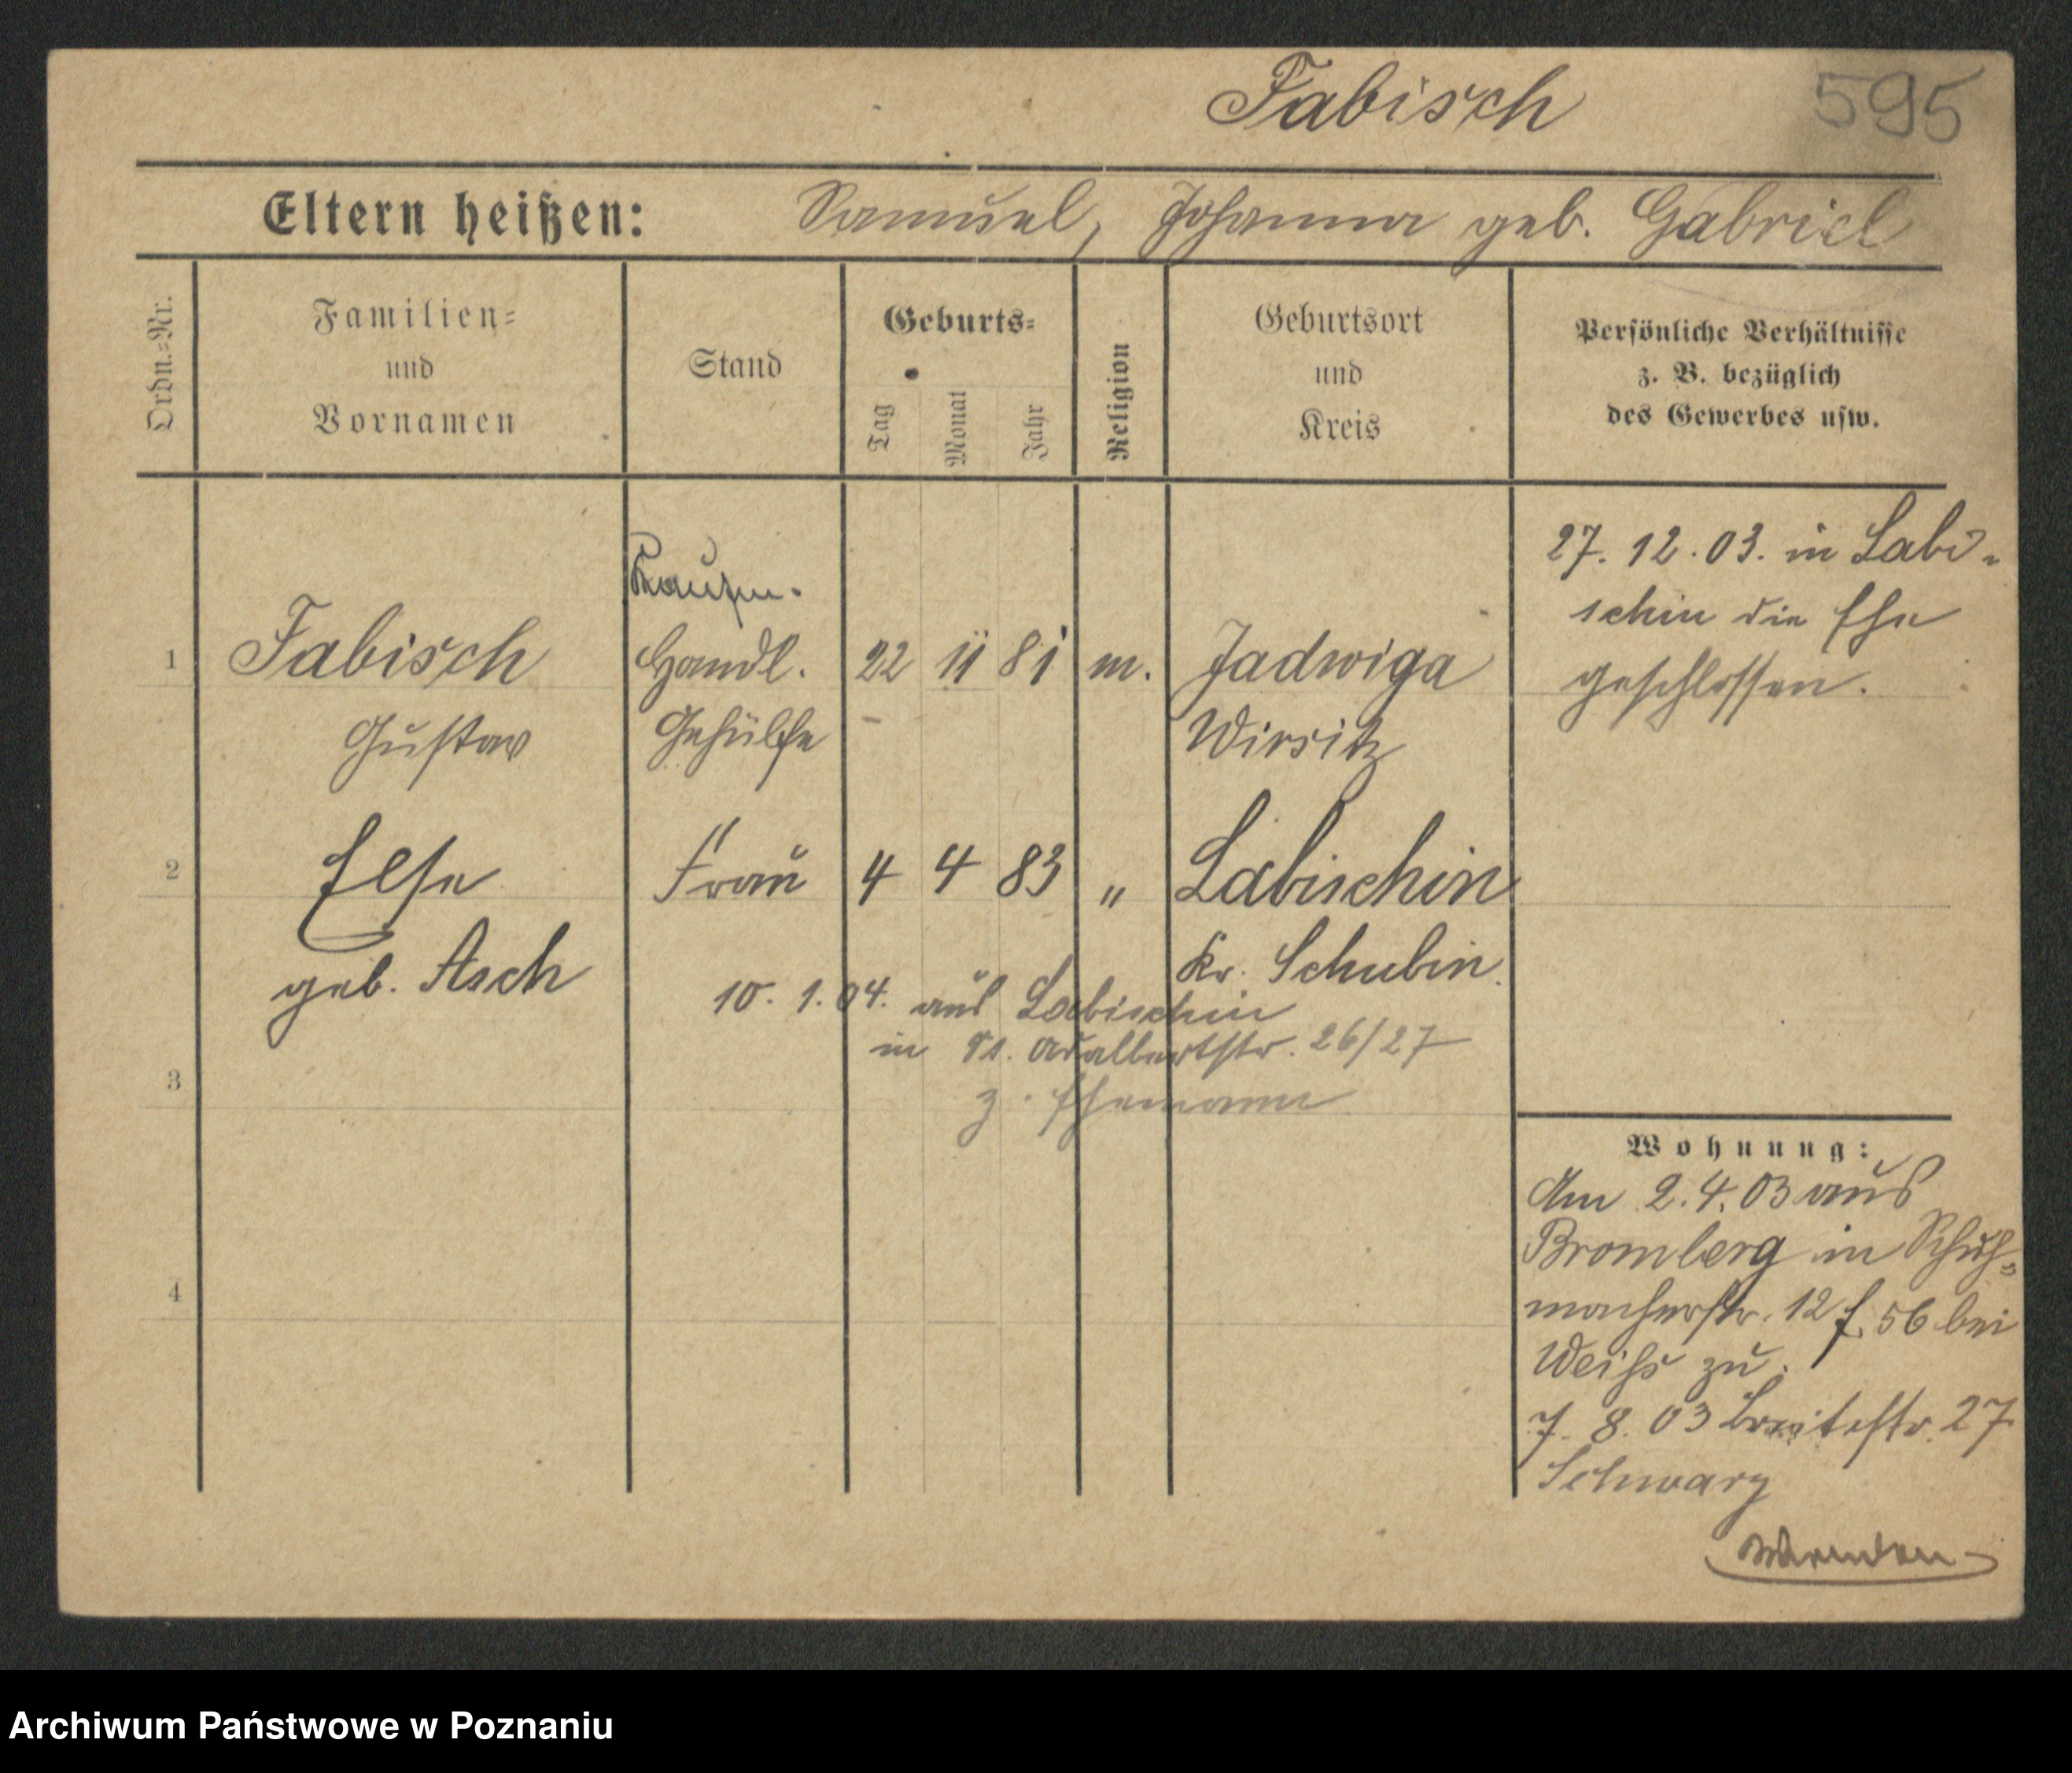 Fabisch
595
Eltern heißen: Samuel, Johanna geb. Gabriel
Ordn.=Nr.
Familien=
und
Vornamen
Stand
Geburts=
Tag
Monat
Jahr
Religion
Geburtsort
und
Kreis
Persönliche Verhältnisse
z. B. bezüglich
des Gewerbes usw.
Kaufm.
1 Fabisch Handl. 22 11 81 m. Jadwiga
Gustav Gehülfe Wirsitz
27. 12. 03. in Labi-
schin die Ehe
geschlossen.
2 Else Frau 4 4 83 " Labischin
geb. Asch Kr. Schubin.
10. 1. 04. aus Labischin
in St. Adalbertstr. 26/27
z. Ehemann
3
4
Wohnung:
Am 2. 4. 03 aus
Bromberg in Schuh=
macherstr. 12 f. 56 bei
Weihs zu.
7. 8. 03 Breitestr. 27
Schwarz
Wenden
Archiwum Państwowe w Poznaniu